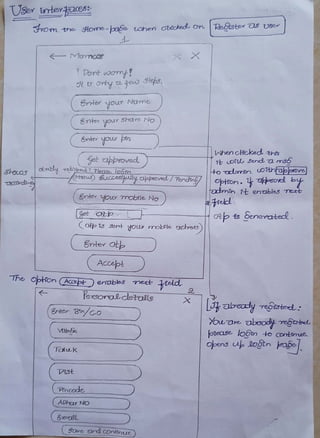 User interfaces:
From the Home page when clicked on Register as User
1
← Momcos X X
! Dont worry!
It is only a few steps.
Enter your Name
Enter your share No
Enter your pin
Get approved
When clicked this
it will send a msg
to admin with approve
option. if approved by
admin it enables next
field.
Shows
according
already registered! Please login
(Status) successfully approved / Pending
Enter your mobile No
Get otp
otp is Generated.
(otp is sent your mobile
Enter Otp
Accept
The option Accept enables next field
2
← Personal details X
Enter
Village
Taluk
Dist
Pincode
Adhar NO
Email
Save and continue
[If already registered:
You are already registed
please login to continue
opens up login page].